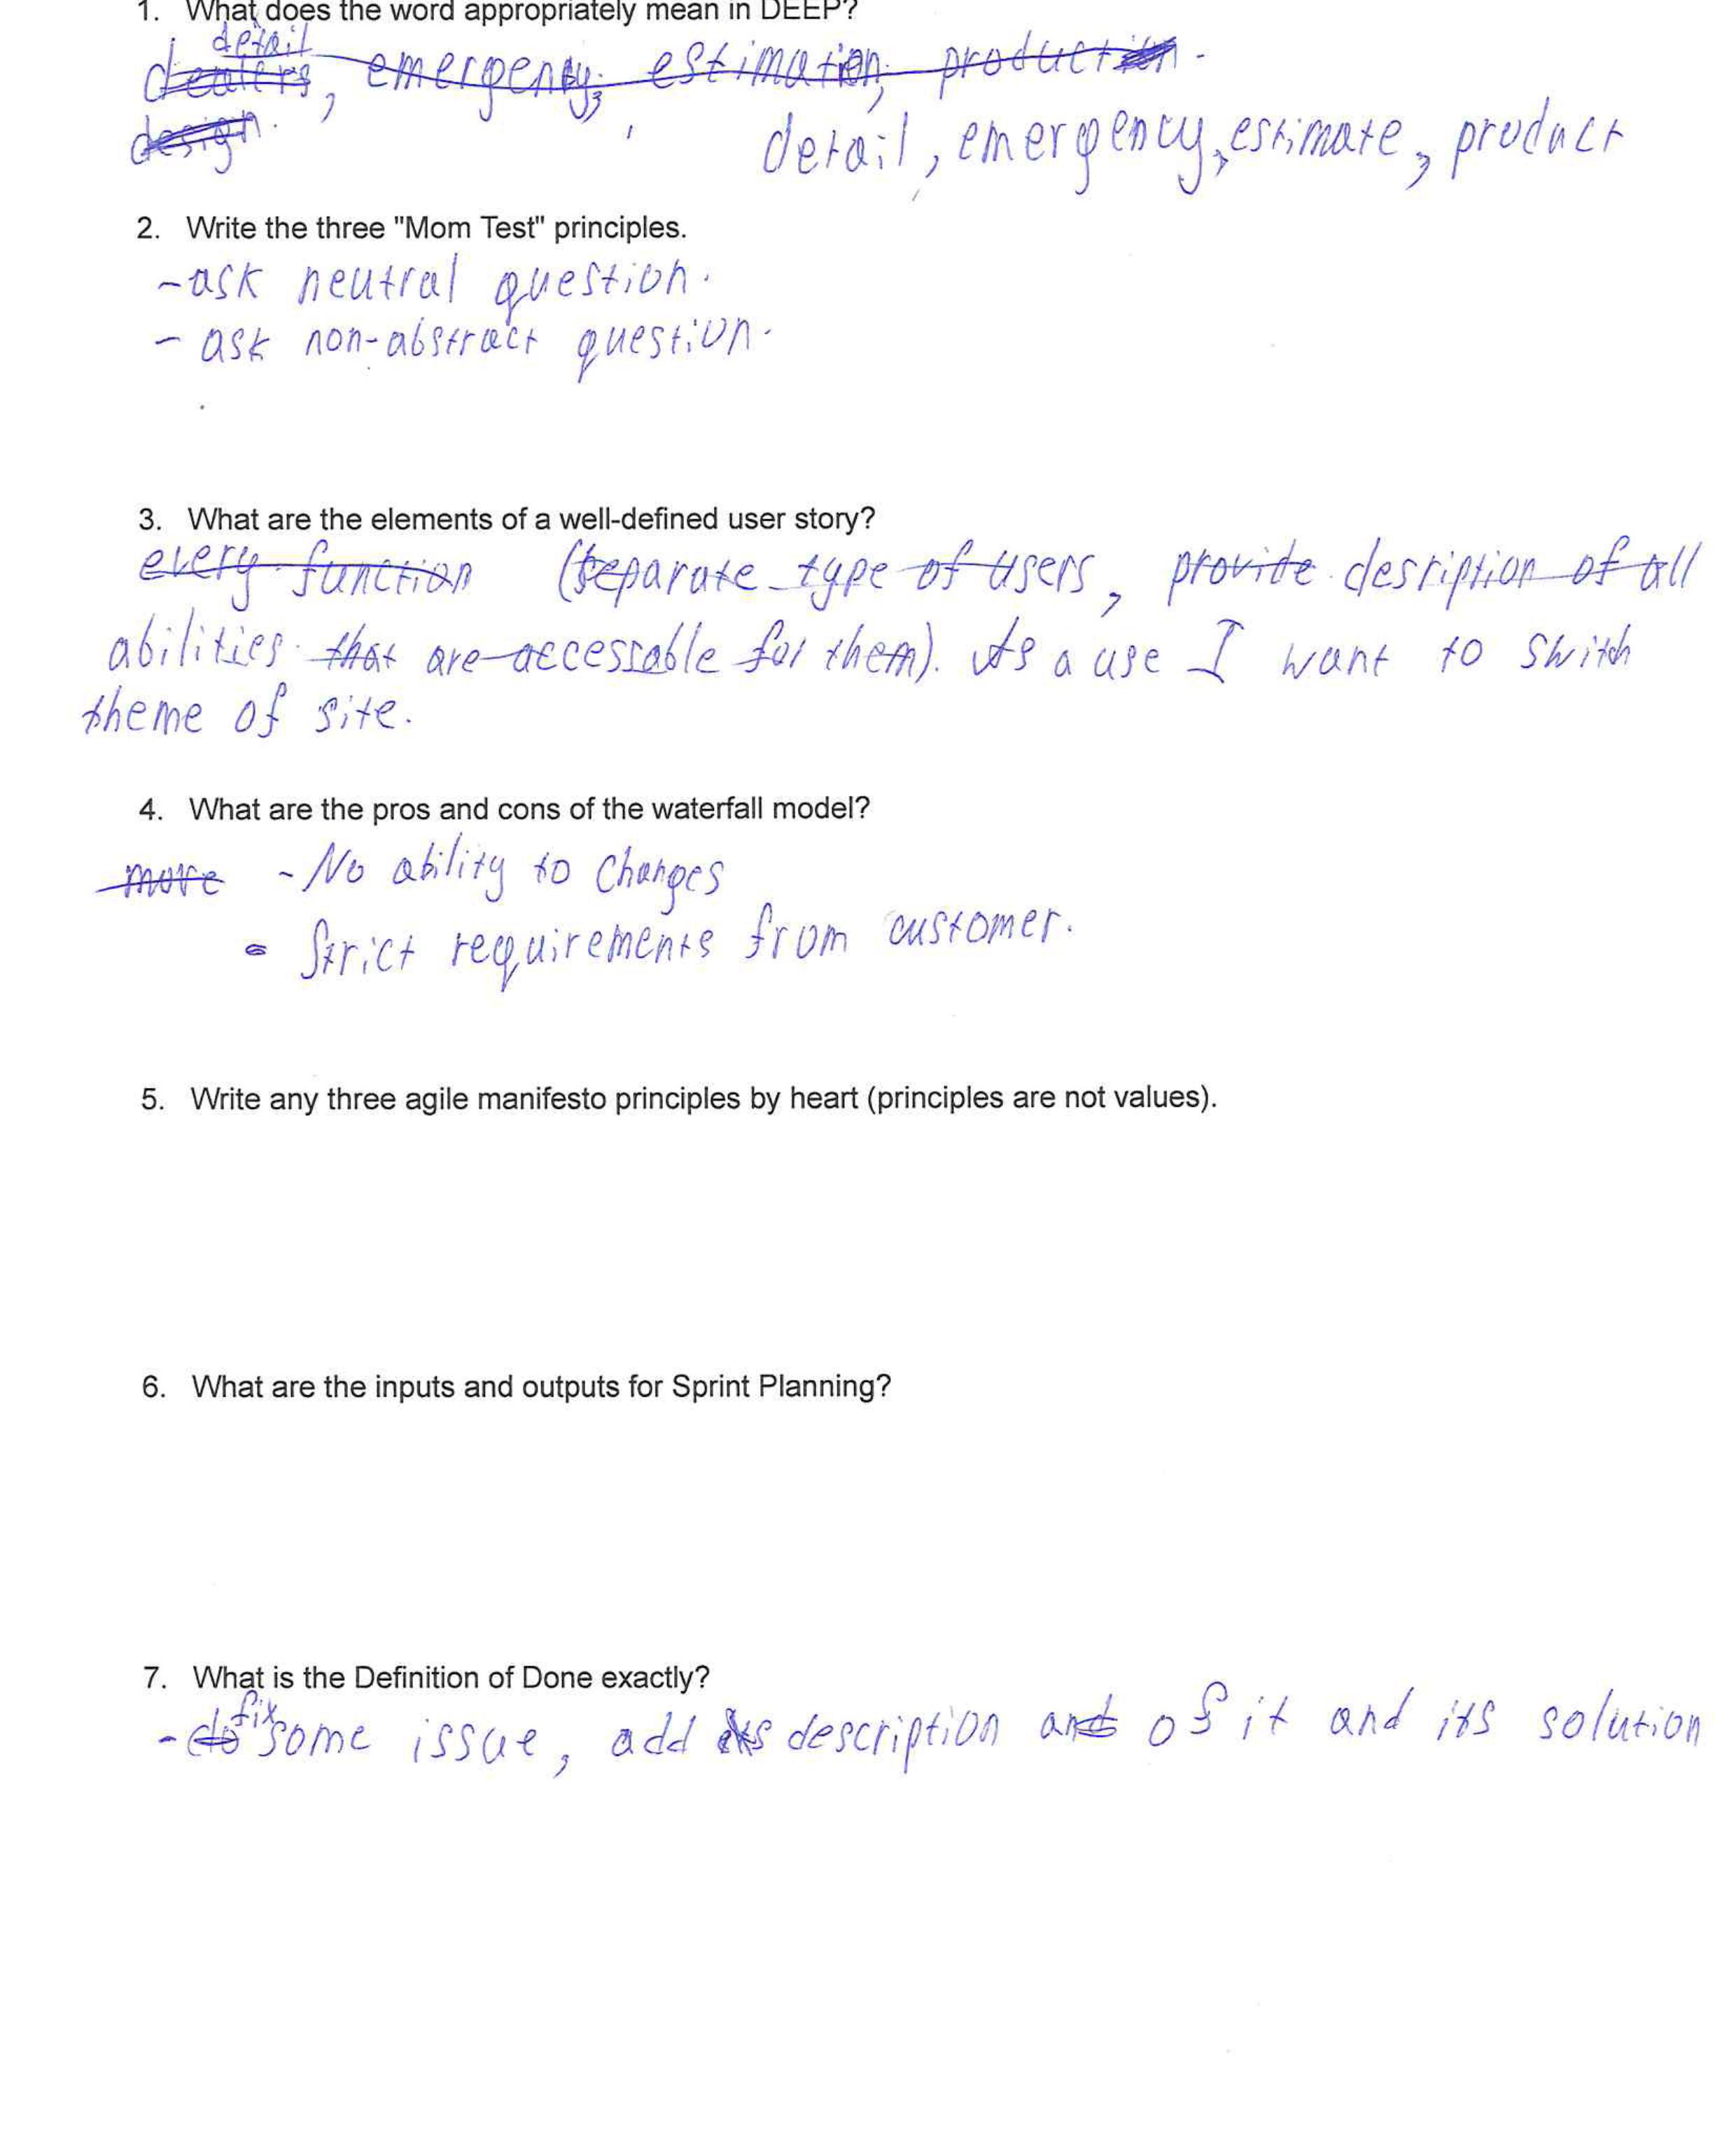 1. What does the word appropriately mean in DEEP?
detail
dealers, emergency, estimation, production.
design.
detail, emergency, estimate, product
2. Write the three "Mom Test" principles.
-ask neutral question.
- ask non-abstract question.
3. What are the elements of a well-defined user story?
every function (separate type of users, provide desription of all
abilities that are accessable for them). As a use I want to swith
theme of site.
4. What are the pros and cons of the waterfall model?
more - No ability to changes
- Strict requirements from customer.
5. Write any three agile manifesto principles by heart (principles are not values).
6. What are the inputs and outputs for Sprint Planning?
7. What is the Definition of Done exactly?
fix
- do some issue, add its description and of it and its solution